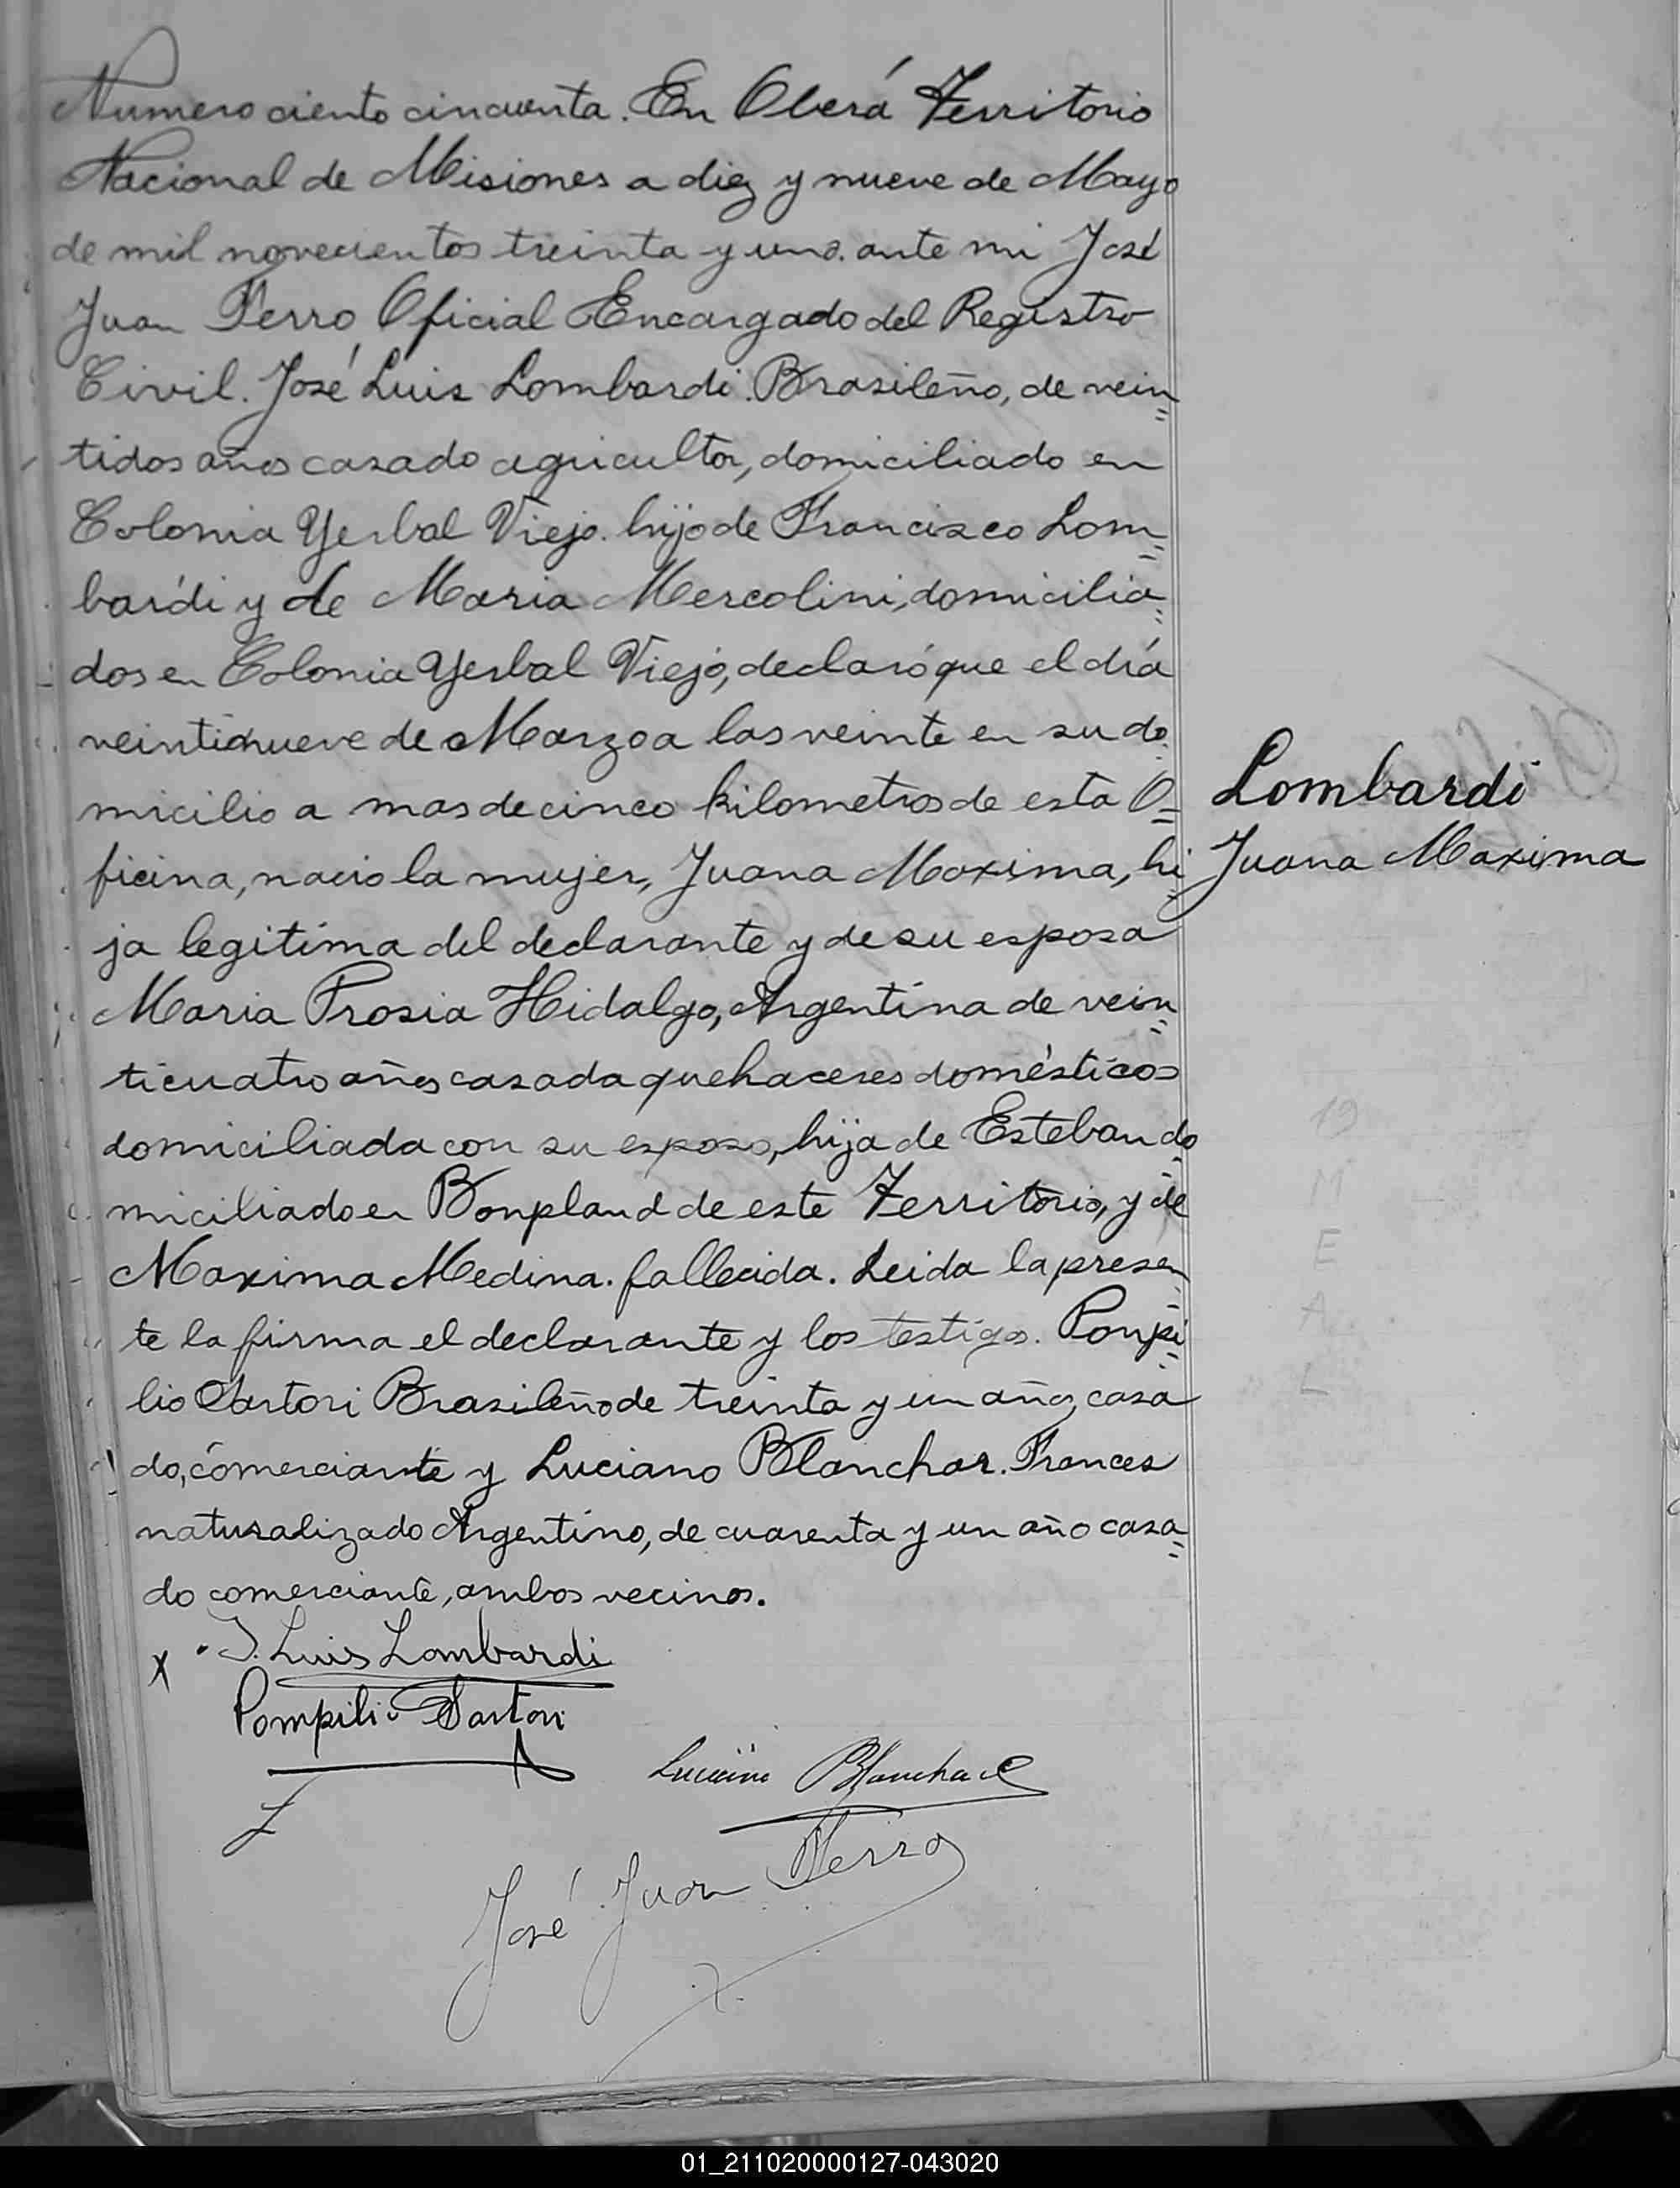 Numero ciento cincuenta. En Oberá Territorio
Nacional de Misiones a diez y nueve de Mayo
de mil novecientos treinta y uno. ante mi José
Juan Ferro, Oficial Encargado del Registro
Civil. José Luis Lombardi. Brasileño, de vein=
tidos años casado agricultor, domiciliado en
Colonia Yerbal Viejo. hijo de Francisco Lom=
bardi y de Maria Mercolini, domicilia=
dos en Colonia Yerbal Viejo, declaró que el día
veintinueve de Marzo a las veinte en su do=
micilio a mas de cinco kilometros de esta O=
ficina, nacio la mujer, Juana Maxima, hi=
ja legitima del declarante y de su esposa
Maria Prosia Hidalgo, Argentina de vein=
ticuatro años casada quehaceres domésticos
domiciliada con su esposo, hija de Esteban do=
miciliado en Bonpland de este Territorio, y de
Maxima Medina. fallecida. Leida la presen=
te la firma el declarante y los testigos. Pompi=
lio Sartori Brasileño de treinta y un años, casa
do, comerciante y Luciano Blanchar. Frances
naturalizado Argentino, de cuarenta y un año casa=
do comerciante, ambos vecinos.
Lombardi
Juana Maxima
x J. Luis Lombardi
Pompilio Sartori
Luciano Blanchard
José Juan Ferro
19
M
E
A
L
01_211020000127-043020